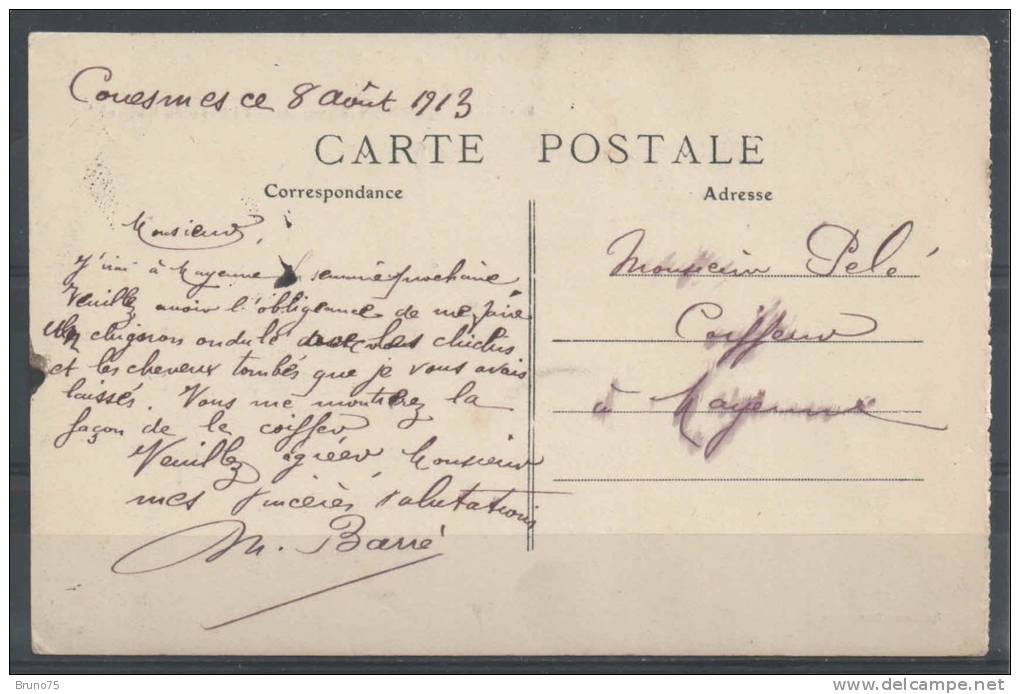 Couesmes ce 8 août 1913
CARTE POSTALE
Correspondance
Adresse
Monsieur,
J'irai à Mayenne la semaine prochaine
Veuillez avoir l'obligeance de me faire
un chignon ondulé avec les chichis
et les cheveux tombés que je vous avais
laissés. Vous me montrerez la
façon de le coiffer
Veuillez agréer Monsieur
mes sincères salutations
M. Barré
Monsieur Pelé
Coiffeur
à Mayenne
Bruno75
www.delcampe.net